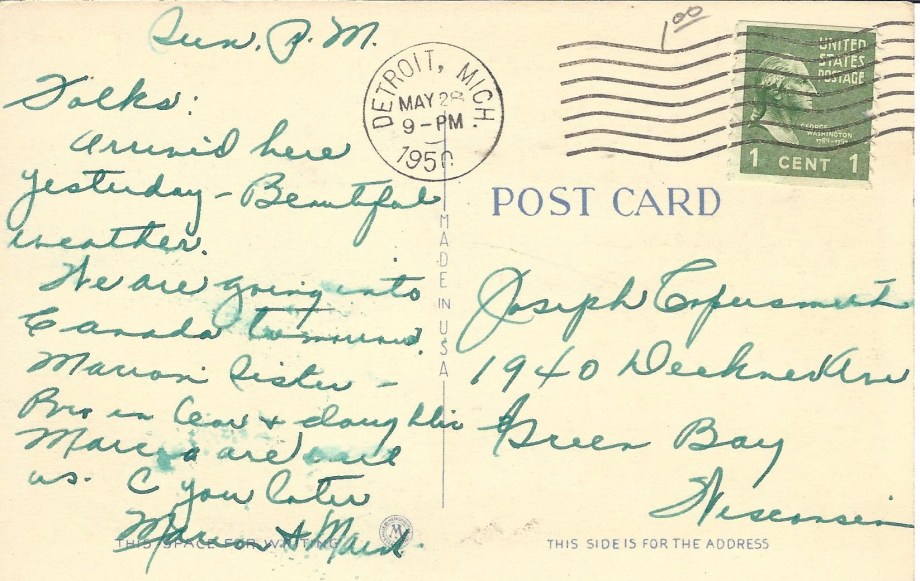 Sun. P.M.
Folks:
Arrived here
yesterday - Beautiful
weather.
We are going into
Canada
Marion Sister -
Bro in law + daughter
Marcia are
us. C you later
Marion &
THIS SPACE FOR WRITING
1.00
DETROIT, MICH.
MAY 28
9-PM
1950
UNITED
STATES
POSTAGE
GEORGE
WASHINGTON
1 CENT 1
POST CARD
MADE IN USA
Joseph
1940 Deckner Ave
Green Bay
Wisconsin
M
THIS SIDE IS FOR THE ADDRESS